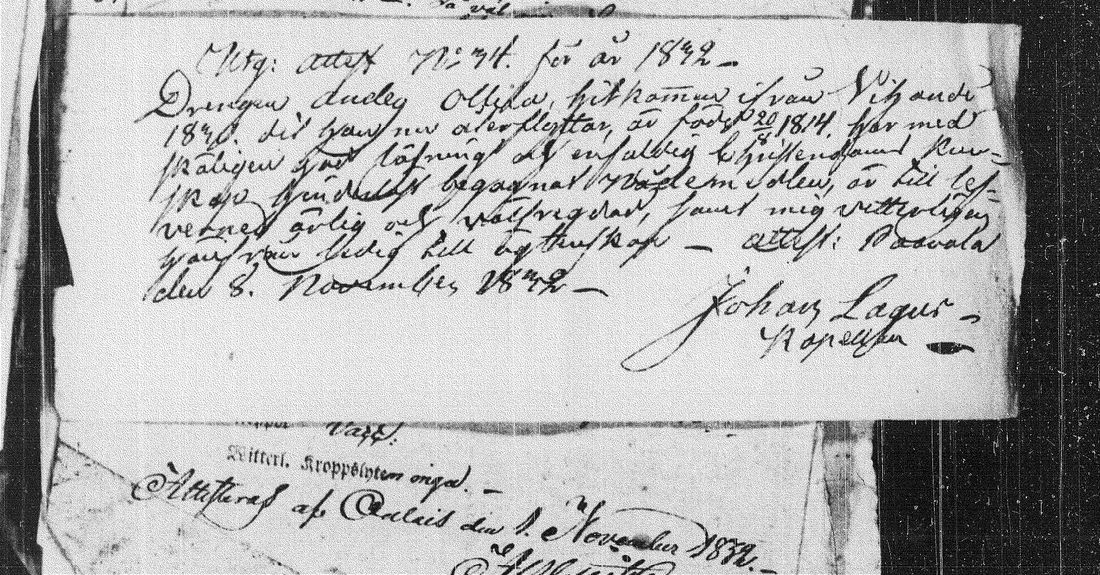 Utg: attest No 34. för år 1832 –
Drengen Anders Olsson, hitkommen ifrån Vihandi
1830. dit han nu återflyttar, är född 20/8 1814. har med
skäligen god läsning och enfaldig Christendoms kun-
skap hinderlöst begagnat Nådemedlen, är till lef-
vernet ärlig och välfregdad, samt mig vitterligen
härifrån ledig till ägtenskap – attest: Paavola
den 8. November 1832 –
Johan Lagus –
Kapellan
Vacc:
Witterl. Kroppslyten inga. –
Attesteras af Calais den 1. November 1832. –